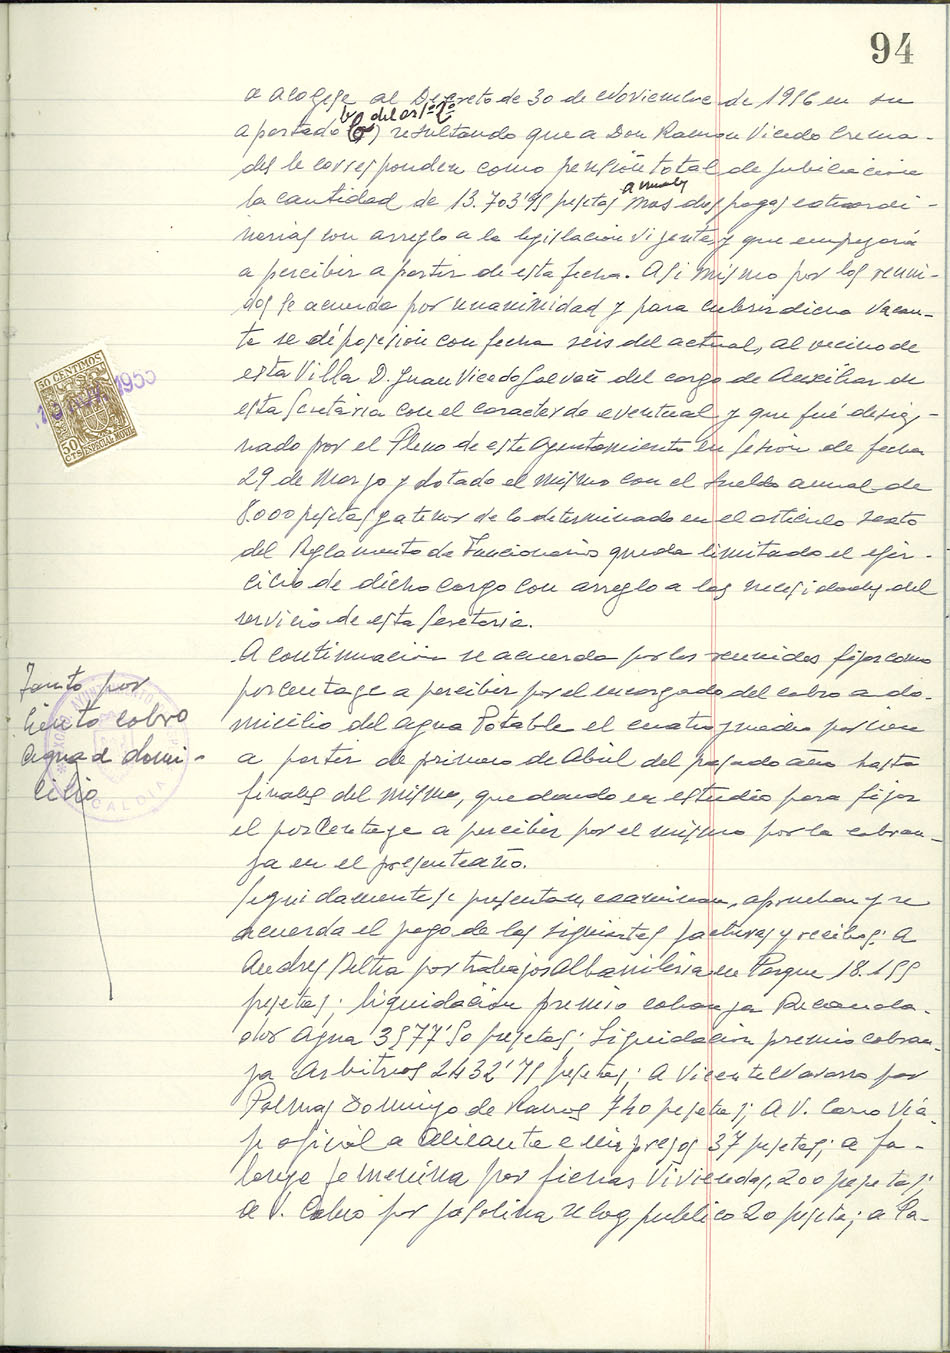 94
a acogese al Decreto de 30 de Noviembre de 1956 en su
b del artº 2º
apartado b) resultando que a Don Ramon Vicedo Crema-
des le corresponden como pensión total de jubilacion
anuales
la cantidad de 13.703'95 pesetas mas dos pagas extraordi-
narias con arreglo a la legislacion vigente y que empezará
a percibir a partir de esta fecha. Asi mismo por los reuni-
dos se acuerda por unanimidad y para cubrir dicha vacan-
te se dé posesion con fecha seis del actual, al vecino de
esta Villa D. Juan Vicedo Galvañ del cargo de Auxiliar de
esta Secretaria con el caracter de eventual y que fué desig-
nado por el Pleno de este Ayuntamiento en sesion de fecha
29 de Marzo y dotado el mismo con el sueldo anual de
8.000 pesetas y a tenor de lo determinado en el articulo sexto
del Reglamento de Funcionarios queda limitado el ejer-
cicio de dicho cargo con arreglo a las necesidades del
servicio de esta Secretaria.
A continuacion se acuerda por los reunidos fijar como
porcentage a percibir por el encargado del cobro a do-
micilio del agua Potable el cuatro y medio por cien
a partir de primero de Abril del pasado año hasta
finales del mismo, quedando en estudio para fijar
el porcentage a percibir por el mismo por la cobran-
za en el presente año.
Seguidamente se presentan, examinan, aprueban y se
acuerda el pago de las siguientes facturas y recibos: A
Andres Beltra por trabajos Albañileria en Parque 18.155
pesetas; liquidacion premio cobranza Recauda-
dor Agua 3577'50 pesetas; Liquidacion premio cobran-
za Arbitrios 2432'75 pesetas; A Vicente Navarro por
Palmas Domingo de Ramos 740 pesetas; A V. Cerro Via-
je oficial a Alicante e impresos 37 pesetas; a Fa-
lange femenina por fichas Viviendas, 200 pesetas;
a V. Cabio por gasolina reloq publico 20 pesetas; a Pa-
Tanto por
ciento cobro
agua a domi-
cilio
50 CENTIMOS
50
CTS ESPECIAL MOVIL
ALCALDIA